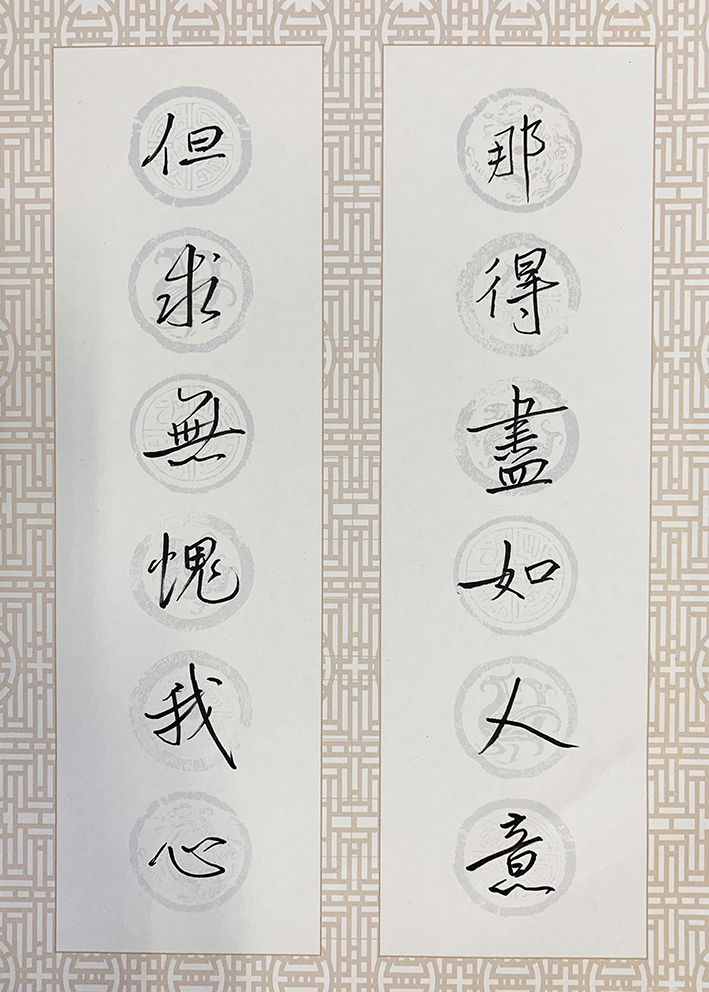 那得盡如人意
但求無愧我心